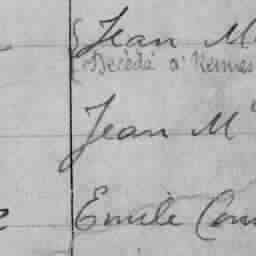 Jean M
Décédé à Rennes
Jean M
Emile Com